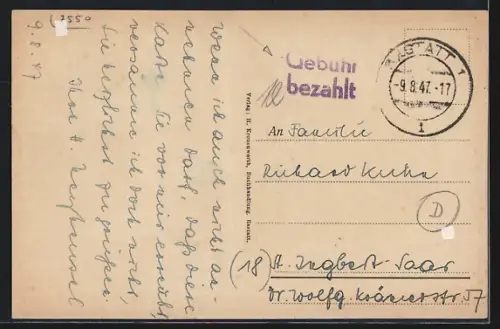 2550
9.8.47
Wenn ich auch nicht an-
nehmen darf, daß diese
Karte Sie vor mir erreicht,
versäume ich doch nicht,
Sie herzlichst zu grüßen.
Ihre H.
Gebühr
bezahlt
RASTATT 1
-9.8.47.-17
1
Verlag: H. Kronenwerth, Buchhandlung, Rastatt.
An Familie
Richard Kuhn
D
(18) St. Ingbert-Saar
Dr. Wolfg. Krämerstr 57